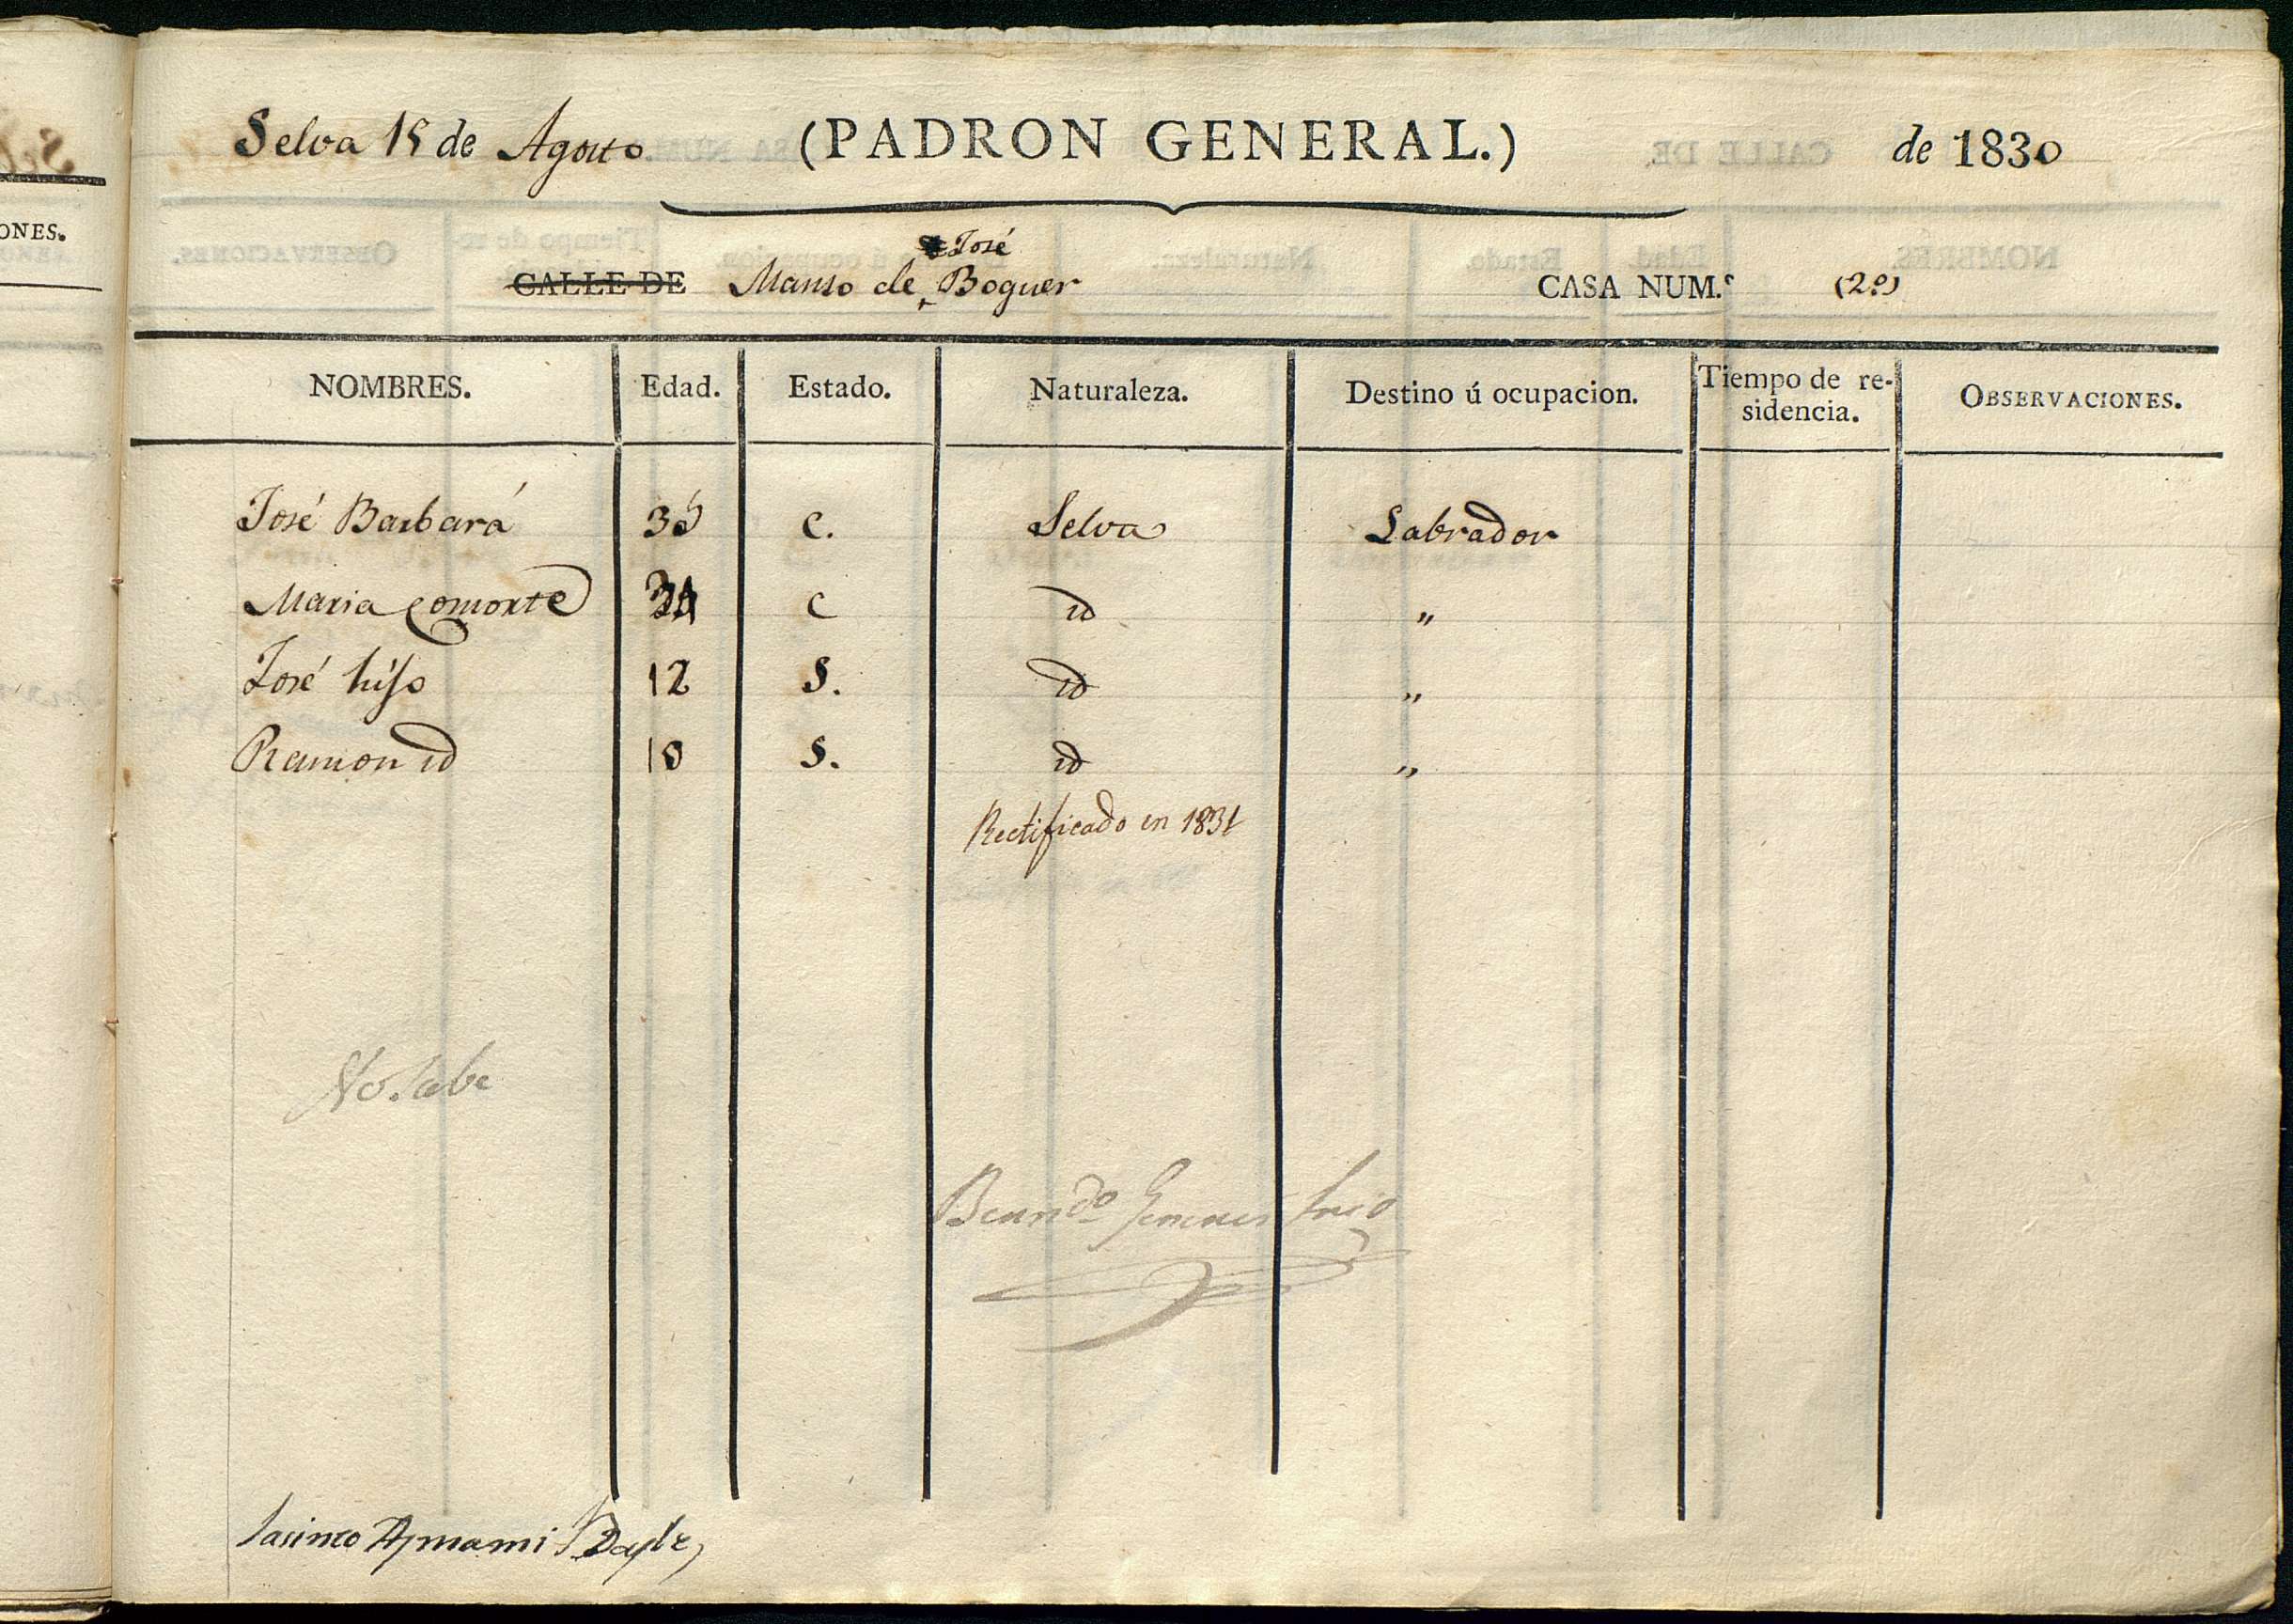 ONES.
Selva 15 de Agosto (PADRON GENERAL.) de 1830
José
CALLE DE Manso de Boguer CASA NUM.º (2º)
NOMBRES. Edad. Estado. Naturaleza. Destino ú ocupacion. Tiempo de re- OBSERVACIONES.
sidencia.
José Barbará C. Selva Labrador
Maria Consorte C id "
José hijo 12 S. id "
Ramon id 10 S. id "
Rectificado en 1831
No sabe
Jacinto Bayle